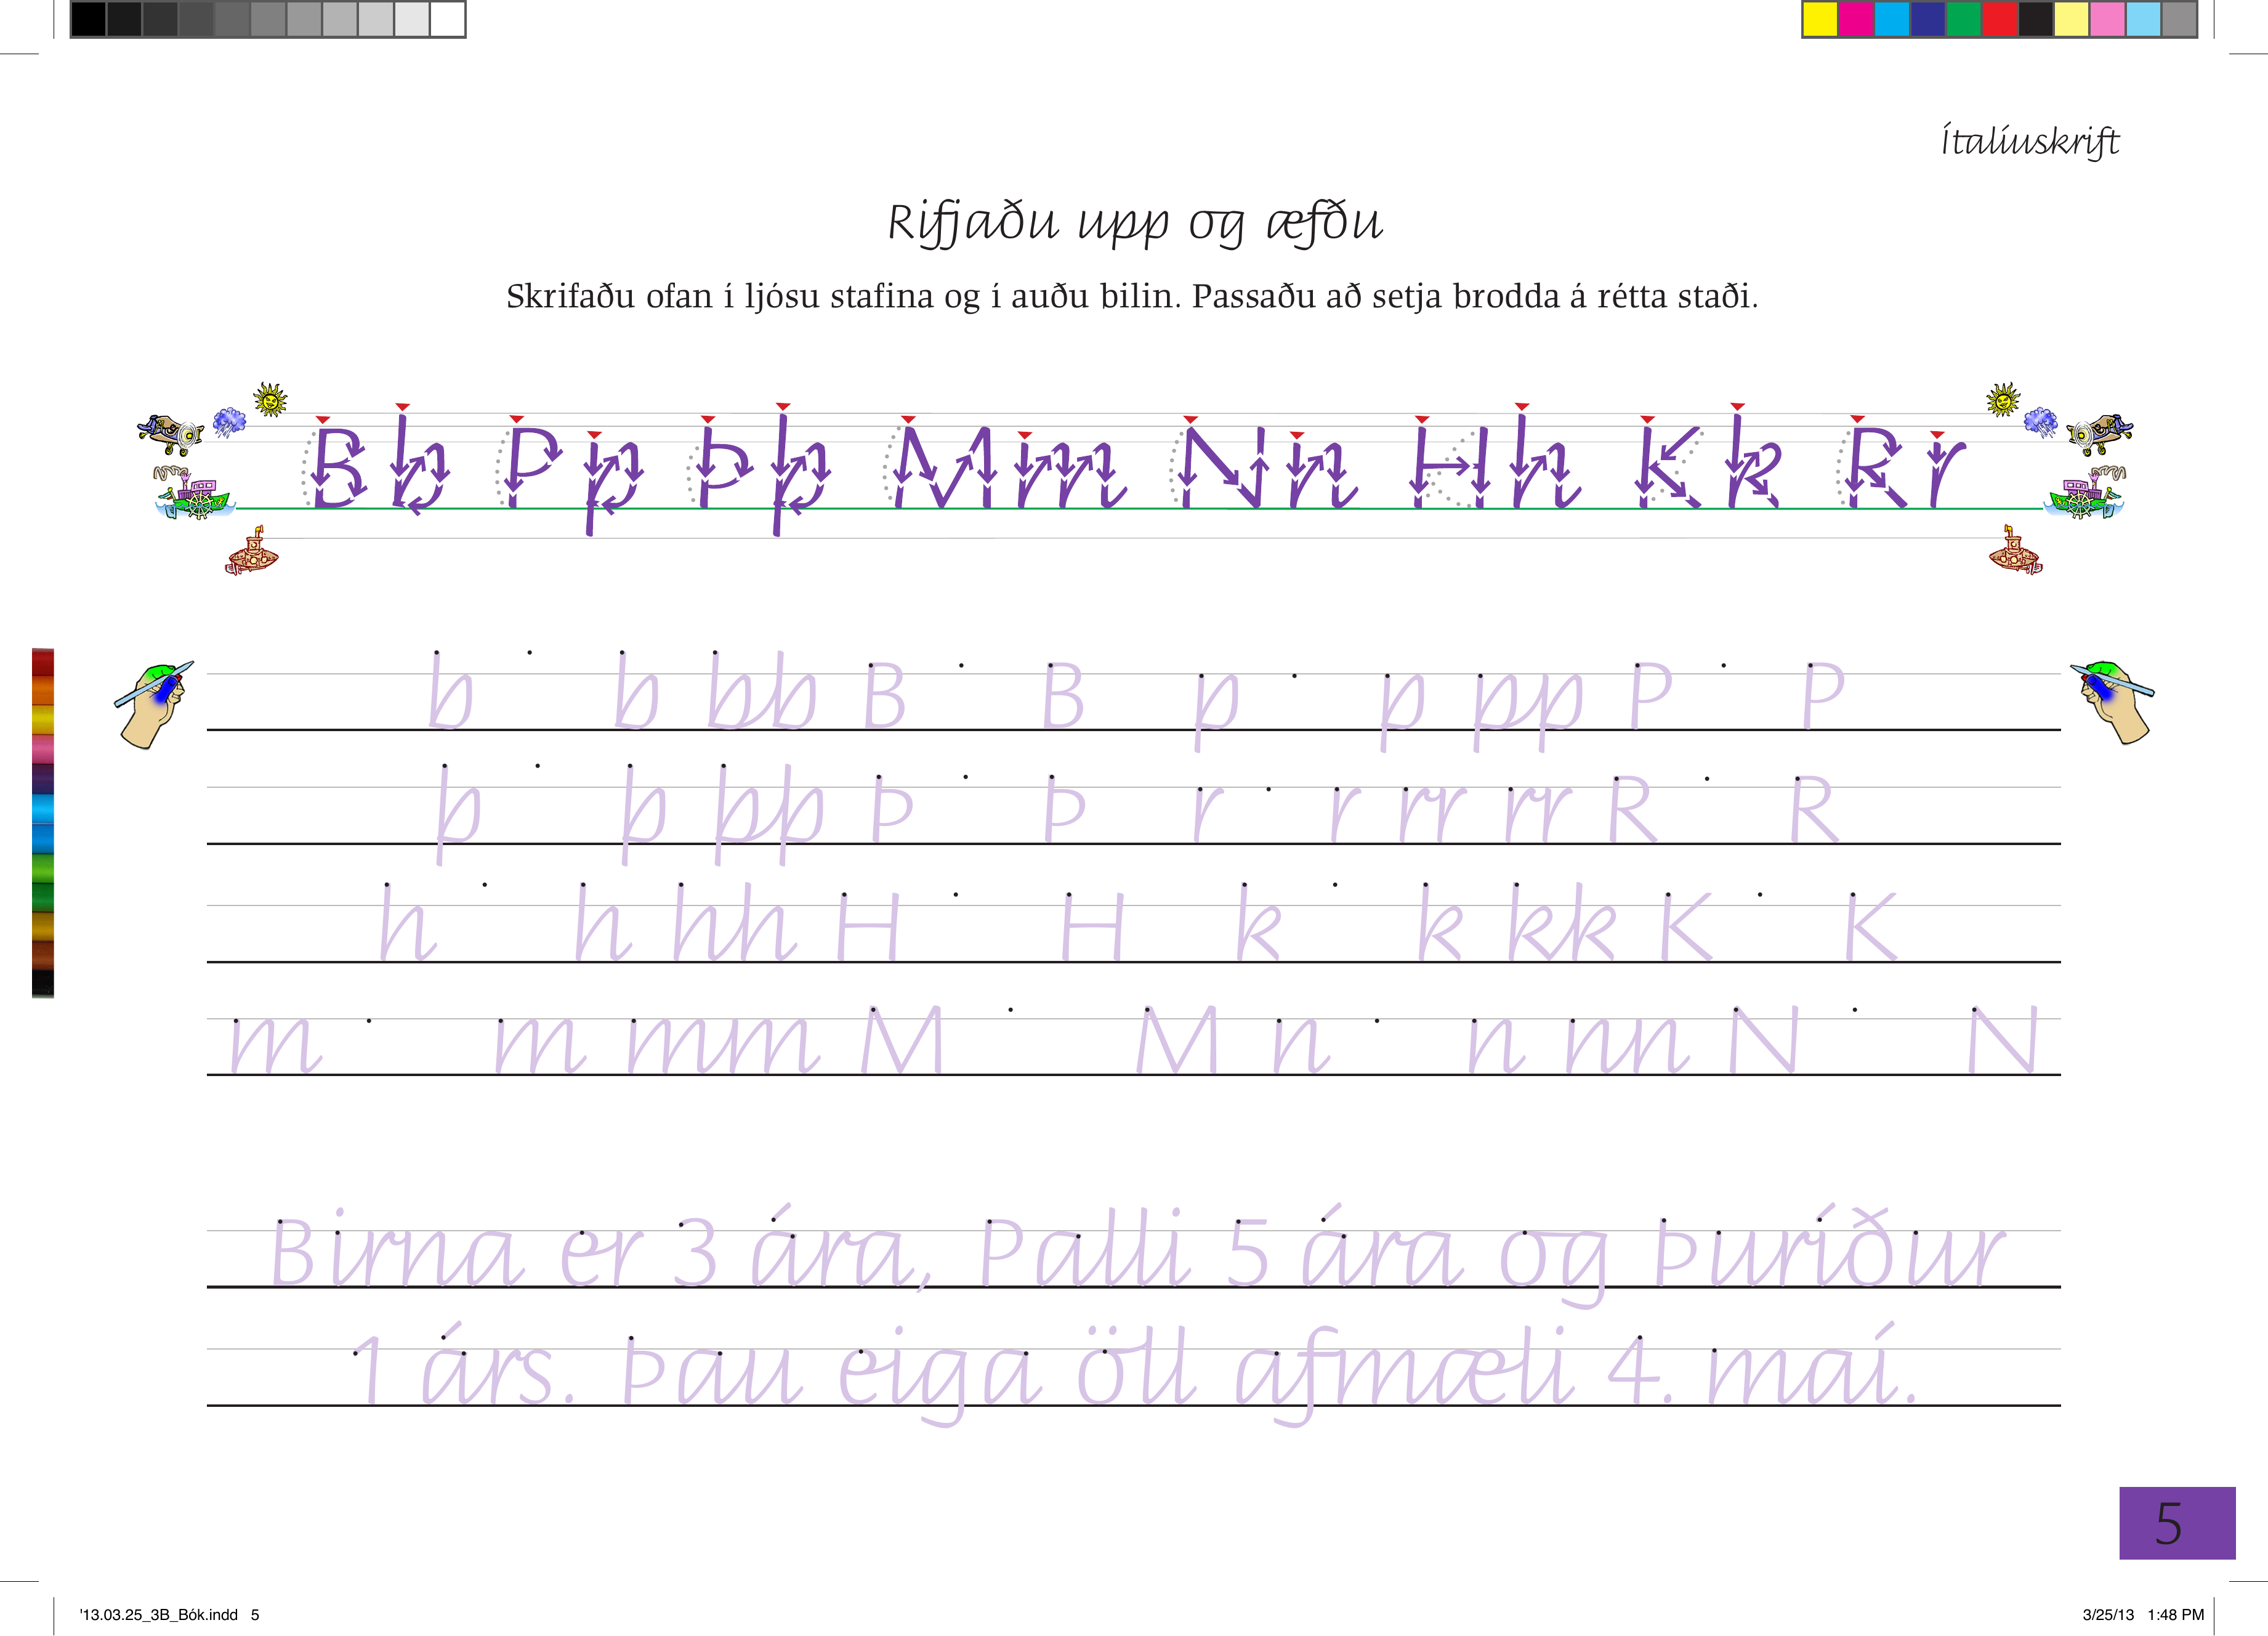 Ítalíuskrift
Rifjaðu upp og æfðu
Skrifaðu ofan í ljósu stafina og í auðu bilin. Passaðu að setja brodda á rétta staði.
B b P p Þ þ M m N n H h K k R r
b b bb B B p p pp P P
þ þ þþ Þ Þ r r rr rr R R
h h hh H H k k kk K K
m m mm M M n n nn N N
Birna er 3 ára, Palli 5 ára og Þuríður
1 árs. Þau eiga öll afmæli 4. maí.
5
'13.03.25_3B_Bók.indd 5 3/25/13 1:48 PM